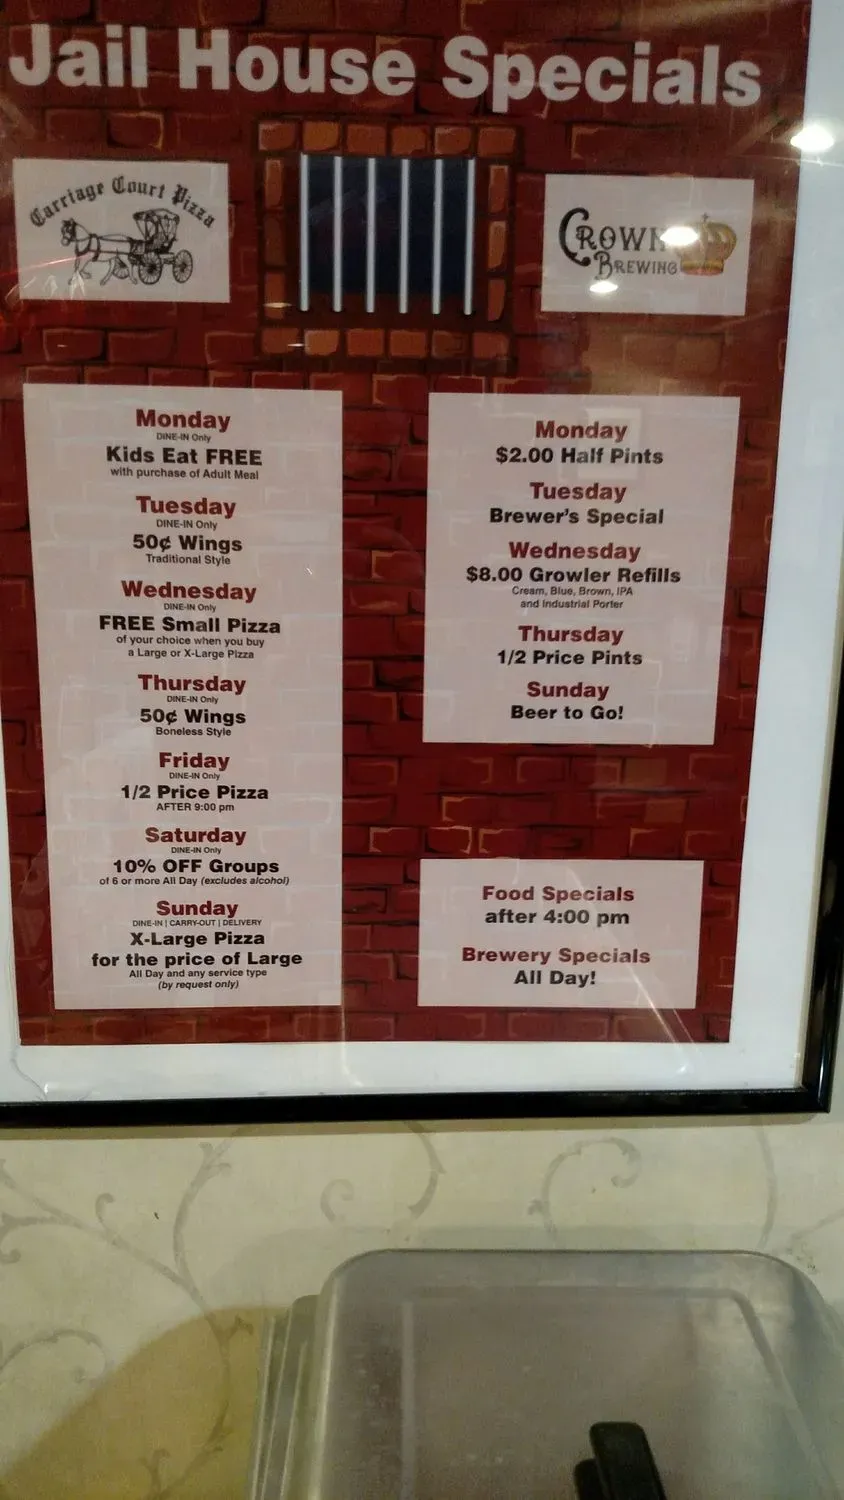 Jail House Specials
Carriage Court Pizza
CROWN
BREWING
Monday
DINE-IN Only
Kids Eat FREE
with purchase of Adult Meal
Tuesday
DINE-IN Only
50¢ Wings
Traditional Style
Wednesday
DINE-IN Only
FREE Small Pizza
of your choice when you buy
a Large or X-Large Pizza
Thursday
DINE-IN Only
50¢ Wings
Boneless Style
Friday
DINE-IN Only
1/2 Price Pizza
AFTER 9:00 pm
Saturday
DINE-IN Only
10% OFF Groups
of 6 or more All Day (excludes alcohol)
Sunday
DINE-IN | CARRY-OUT | DELIVERY
X-Large Pizza
for the price of Large
All Day and any service type
(by request only)
Monday
$2.00 Half Pints
Tuesday
Brewer's Special
Wednesday
$8.00 Growler Refills
Cream, Blue, Brown, IPA
and Industrial Porter
Thursday
1/2 Price Pints
Sunday
Beer to Go!
Food Specials
after 4:00 pm
Brewery Specials
All Day!